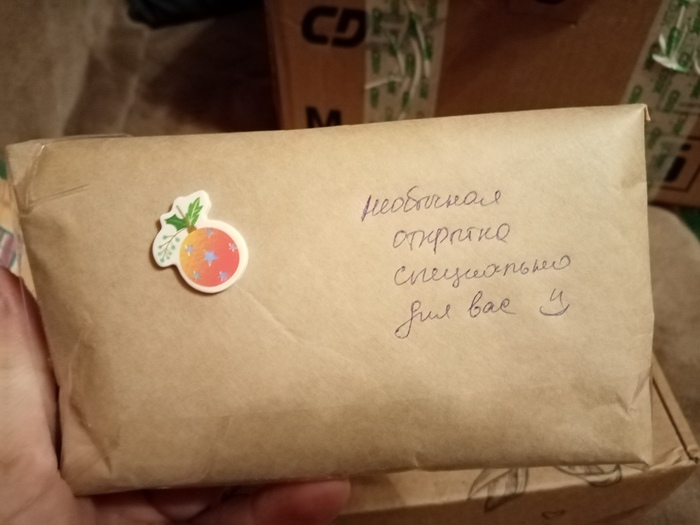 CD
M
необычная
открытка
специально
для вас